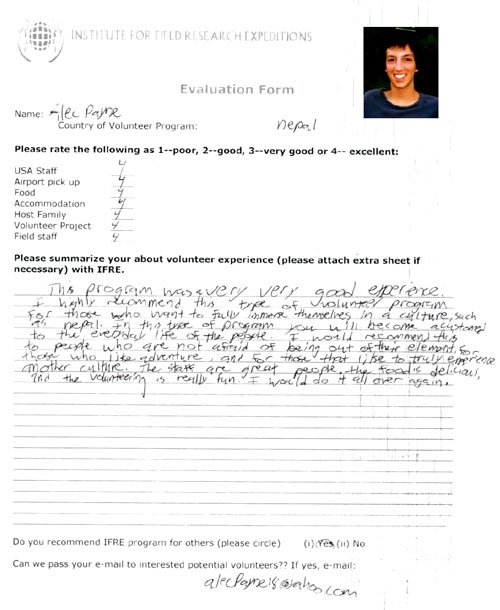 INSTITUTE FOR FIELD RESEARCH EXPEDITIONS
Evaluation Form
Name: Alec Payne
Country of Volunteer Program: nepal
Please rate the following as 1--poor, 2--good, 3--very good or 4-- excellent:
USA Staff 4
Airport pick up 4
Food 4
Accommodation 4
Host Family 4
Volunteer Project 4
Field staff 4
Please summarize your about volunteer experience (please attach extra sheet if
necessary) with IFRE.
This program was a very very good experience.
I highly recommend this type of volunteer program
for those who want to fully immerse themselves in a culture, such
as nepal. In this type of program you will become acustomed
to the everyday life of the people. I would recommend this
to people who are not afraid of being out of their element, for
those who like adventure, and for those that like to truly experience
another culture. The staff are great people, the food is delicious,
and the volunteering is really fun. I would do it all over again.
Do you recommend IFRE program for others (please circle) (i) Yes (ii) No
Can we pass your e-mail to interested potential volunteers?? If yes, e-mail: